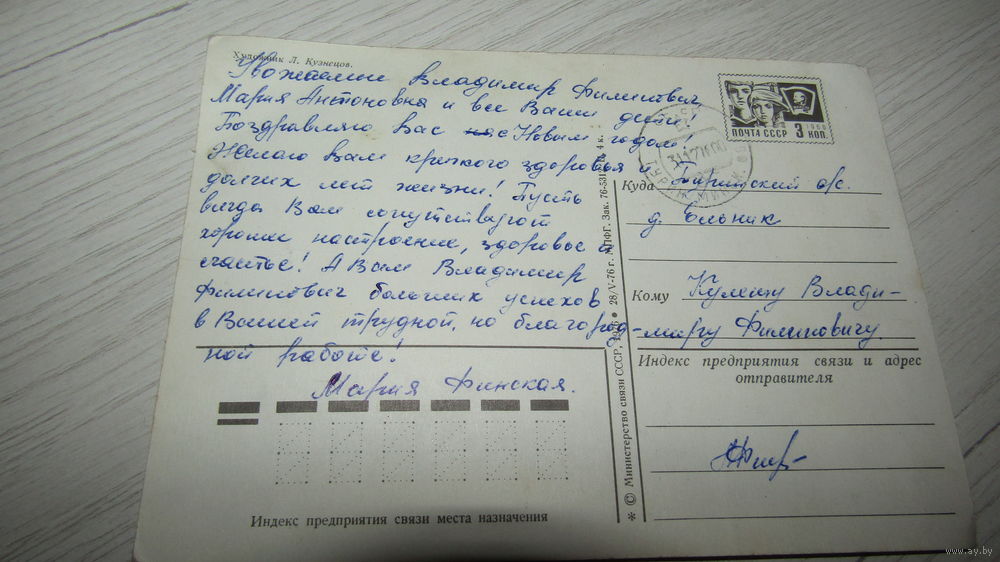 Художник Л. Кузнецов.
Уважаемые Владимир Филиппович,
Мария Антоновна и все Ваши дети!
Поздравляю Вас с Новым годом!
Желаю Вам крепкого здоровья и
долгих лет жизни! Пусть
всегда Вам сопутствуют
хорошее настроение, здоровье и
счастье! А Вам Владимир
Филиппович больших успехов
в Вашей трудной, но благород-
ной работе!
Мария Финская.
Индекс предприятия связи места назначения
* © Министерство связи СССР, 1976 ● 28/V-76 г. МПФГ. Зак. 4 к.
ПОЧТА СССР 3 КОП.
1966
Куда
д. Ельник
Кому Владими-
миру Филипповичу
Индекс предприятия связи и адрес
отправителя
www.ay.by